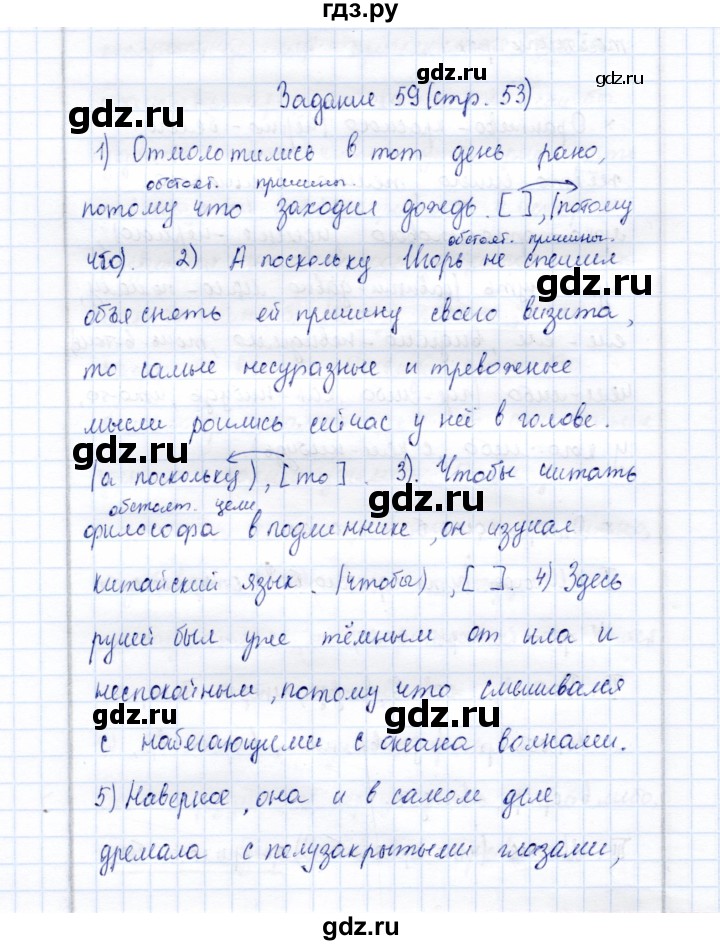 гдз.ру
Задание 59 (стр. 53)
gdz.ru gdz.ru
gdz.ru
1) Отмолотились в тот день рано,
обстоят. причины.
gdz.ru
потому что заходил дождь. [ ], (потому
обстоят. причины.
что). 2) А поскольку Игорь не спешил
gdz.ru
объяснять ей причину своего визита,
то самые несуразные и тревожные
мысли роились сейчас у неё в голове.
gdz.ru
(а поскольку), [то]. 3). Чтобы читать
обстоят. цели
философа в подлиннике, он изучал
gdz.ru
китайский язык. (чтобы), [ ]. 4) Здесь
ручей был уже тёмным от ила и
неспокойным, потому что смешивался
gdz.ru gdz.ru
с набегающими с океана волнами.
5) Наверное, она и в самом деле
gdz.ru
дремала с полузакрытыми глазами,
gdz.ru
gdz.ru